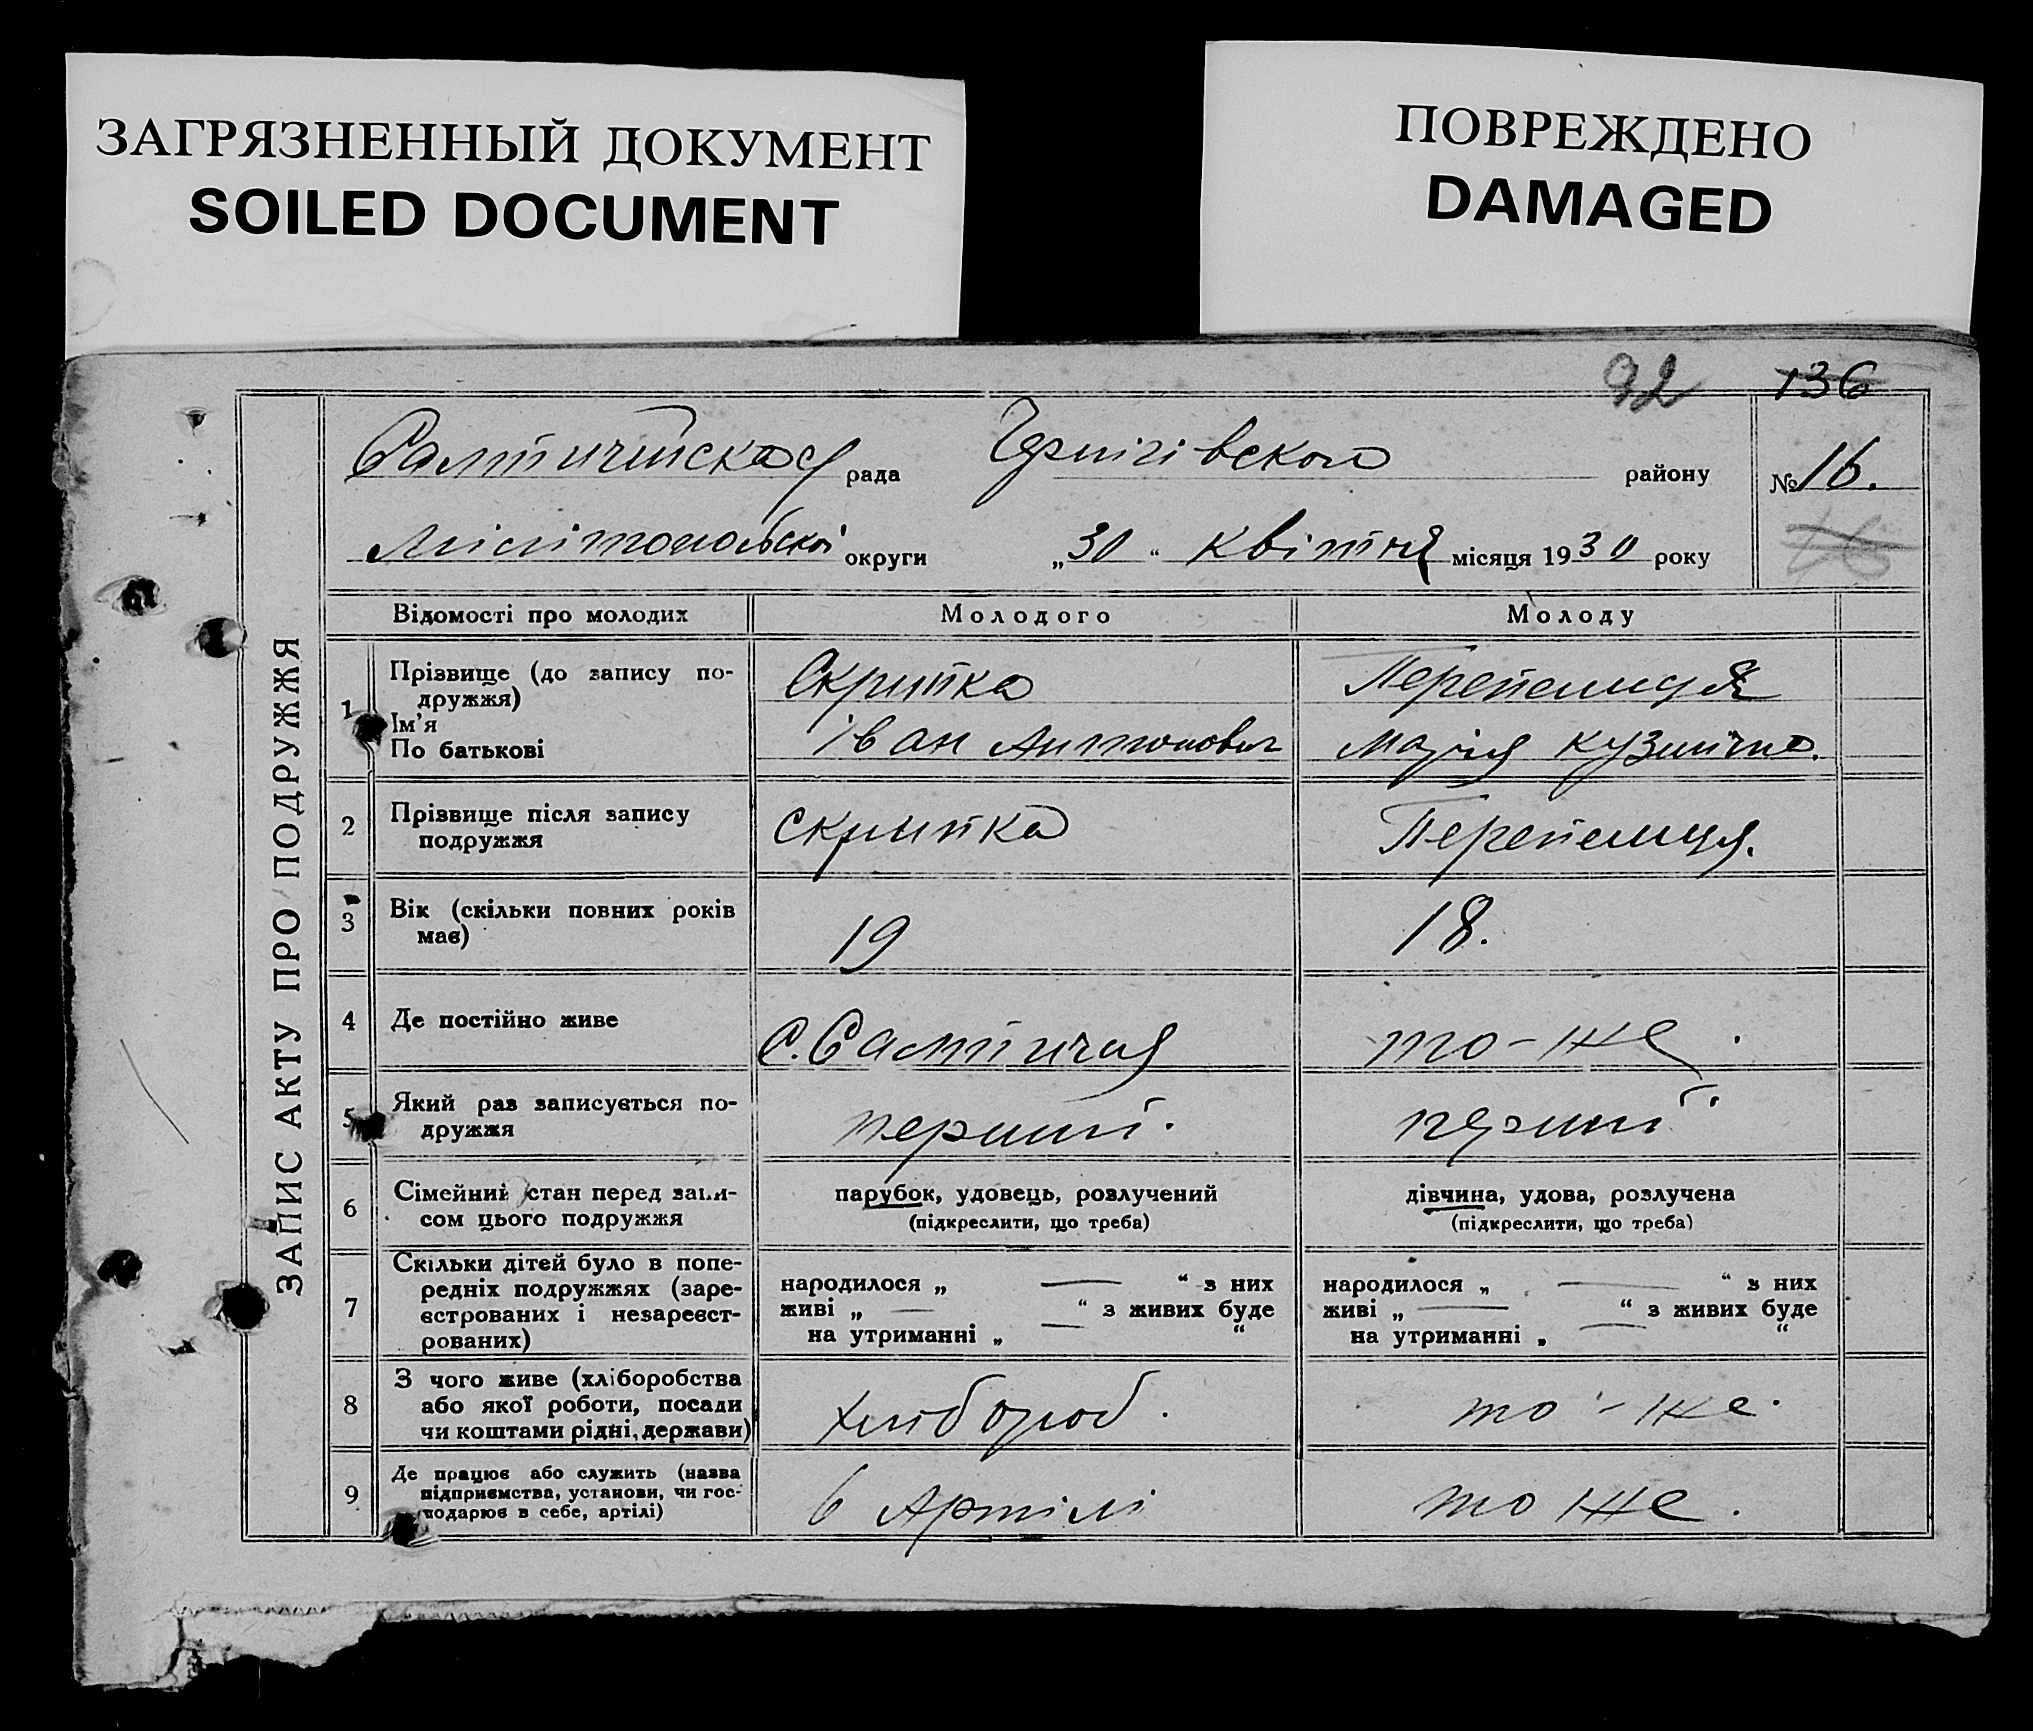 ЗАГРЯЗНЕННЫЙ ДОКУМЕНТ
SOILED DOCUMENT
ПОВРЕЖДЕНО
DAMAGED
92 136
Салтичийская рада Чернігівского району № 16.
Мілітопольскоі округи „30“ квітня місяця 1930 року
ЗАПИС АКТУ ПРО ПОДРУЖЖЯ
Відомості про молодих Молодого Молоду
1 Прізвище (до запису по-
дружжя) Скрипка Перепелиця
Ім'я
По батькові Іван Антонович Марія Кузмічна.
2 Прізвище після запису
подружжя Скрипка Перепелиця.
3 Вік (скільки повних років
має) 19 18.
4 Де постійно живе С. Салтичия то-же.
5 Який раз записується по-
дружжя перший. перший.
6 Сімейний стан перед запи-
сом цього подружжя
парубок, удовець, розлучений
(підкреслити, що треба)
дівчина, удова, розлучена
(підкреслити, що треба)
7 Скільки дітей було в попе-
редніх подружжях (заре-
єстрованих і незареєст-
рованих)
народилося „ — “ з них
живі „ — “ з живих буде
на утриманні „ — “
народилося „ — “ з них
живі „ — “ з живих буде
на утриманні „ — “
8 З чого живе (хліборобства
або якої роботи, посади
чи коштами рідні, держави) хлібороб. то-же.
9 Де працює або служить (назва
підприємства, установи, чи гос-
подарює в себе, артілі) в Артілі то же.